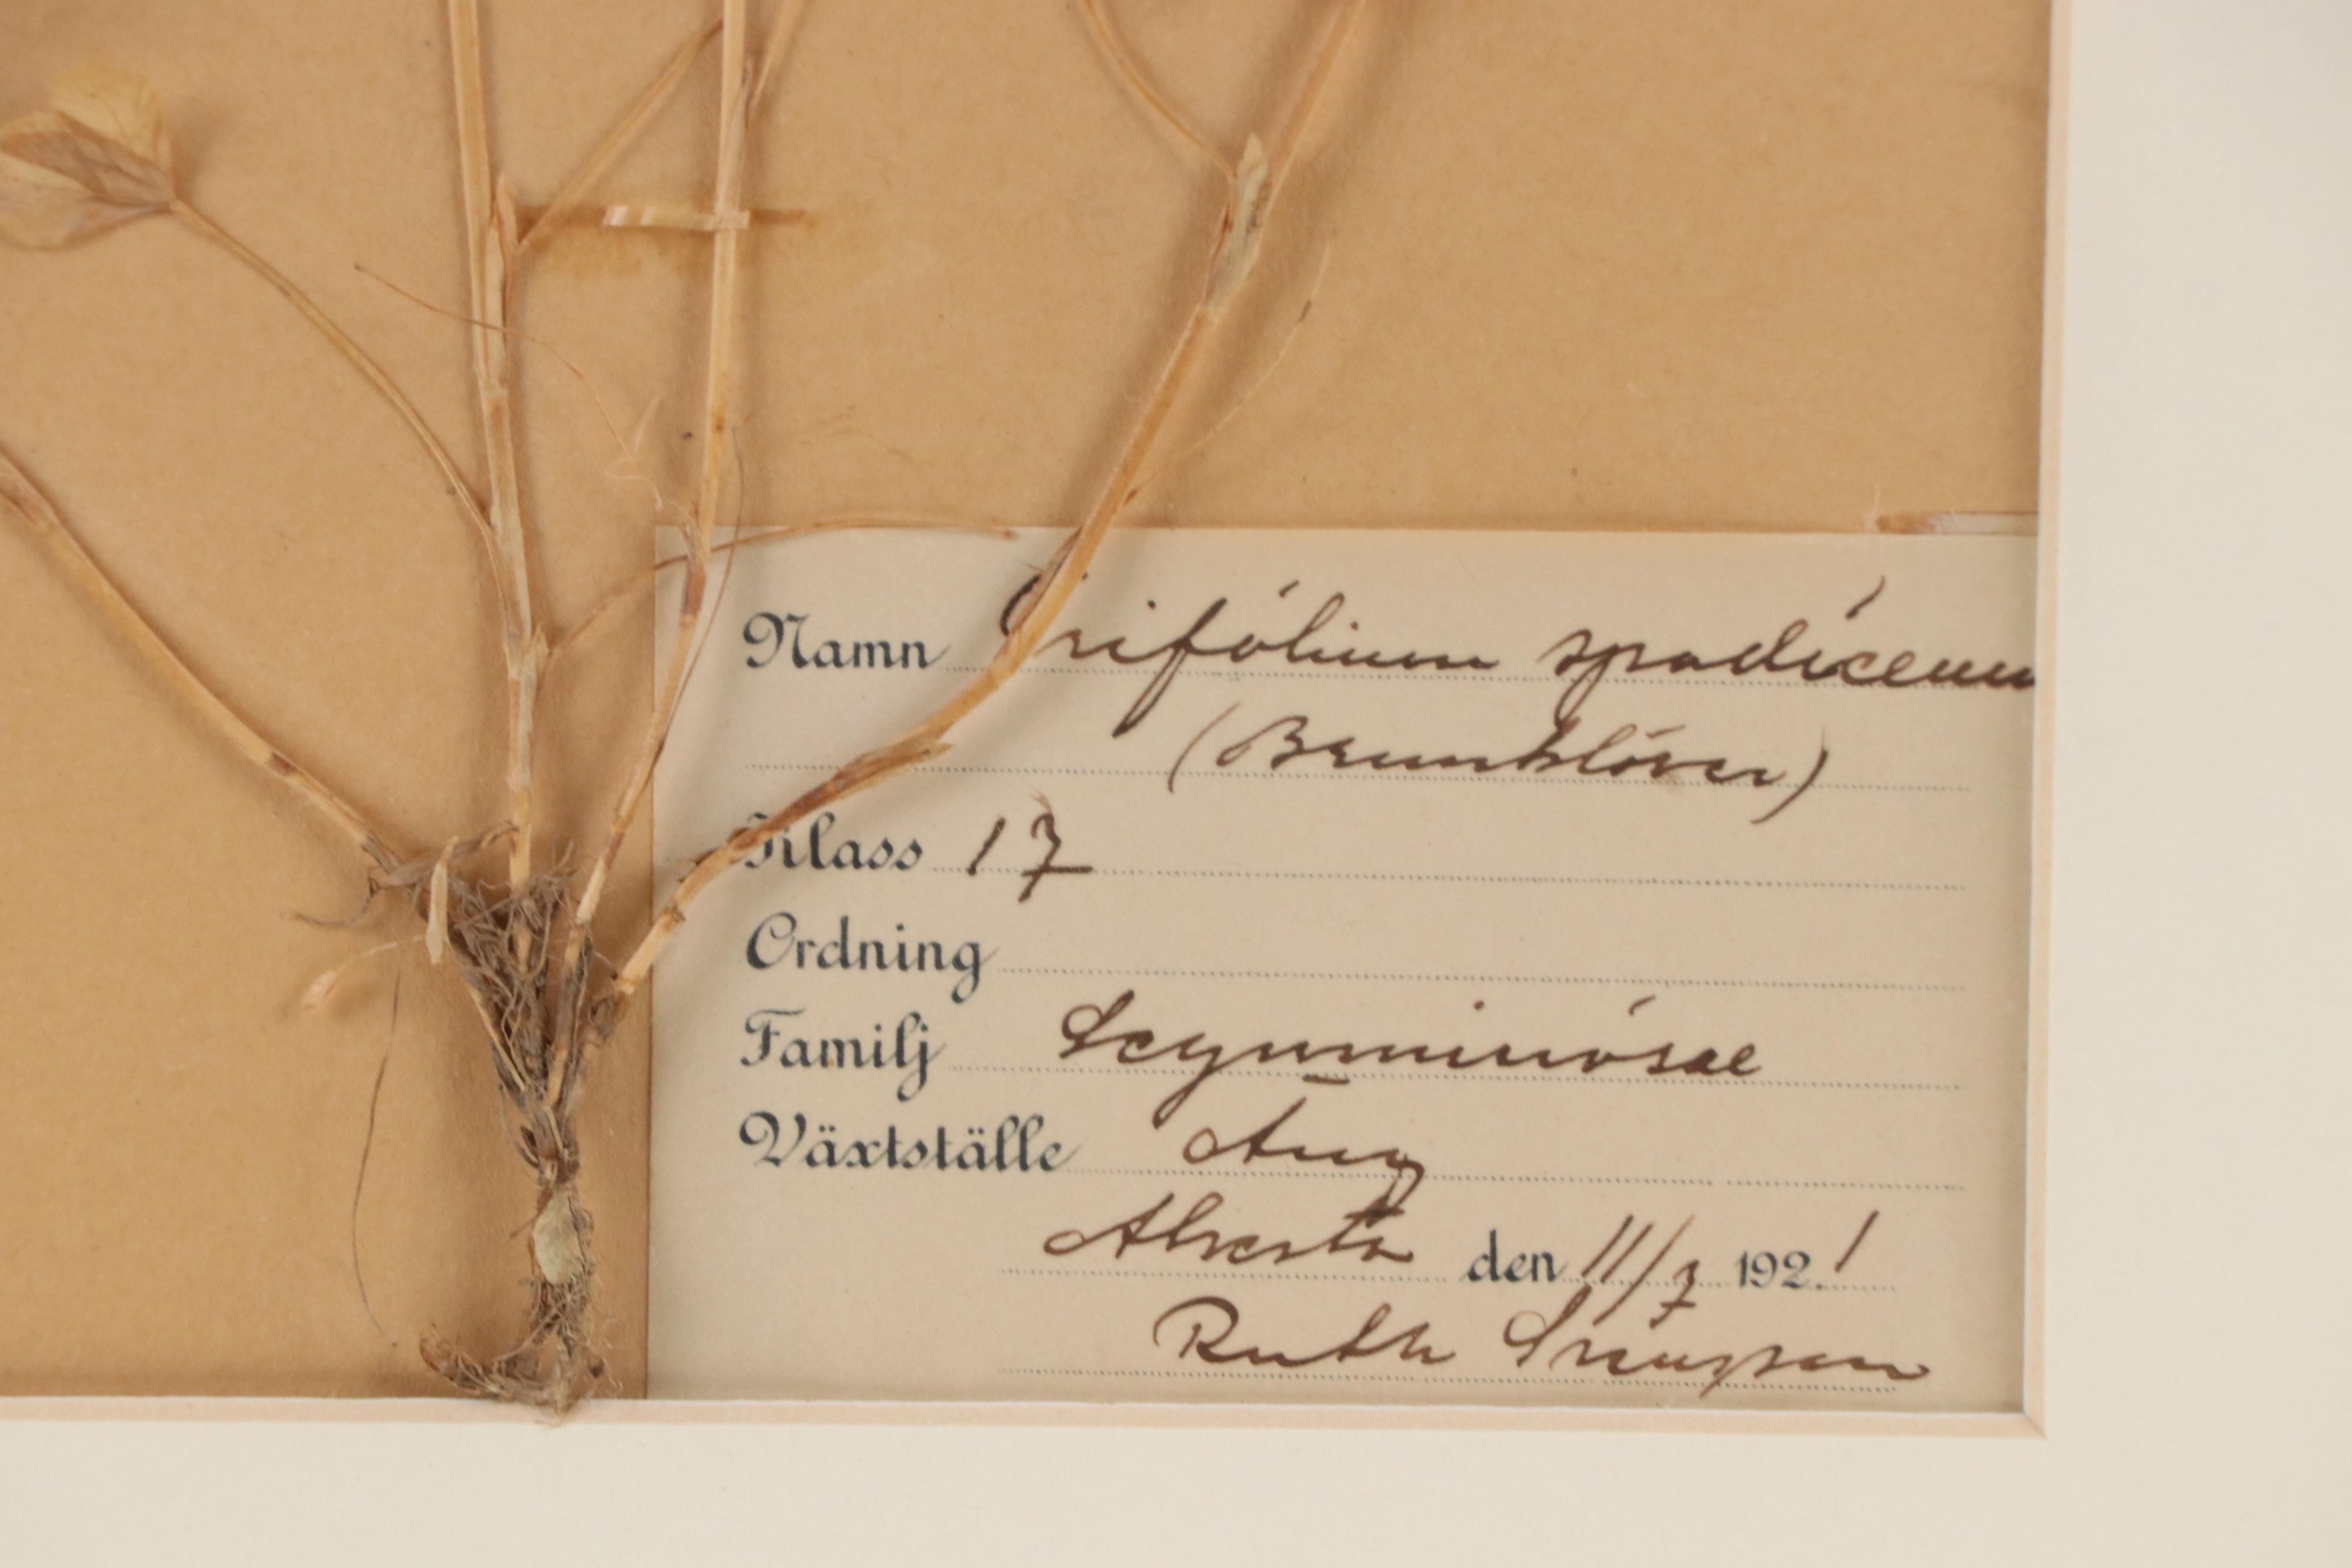 Namn Trifólium spadíceum
(Brunklöver)
Klass 17
Ordning
Familj Leguminósae
Växtställe Äng
Alvesta den 11/7 1921
Ruth